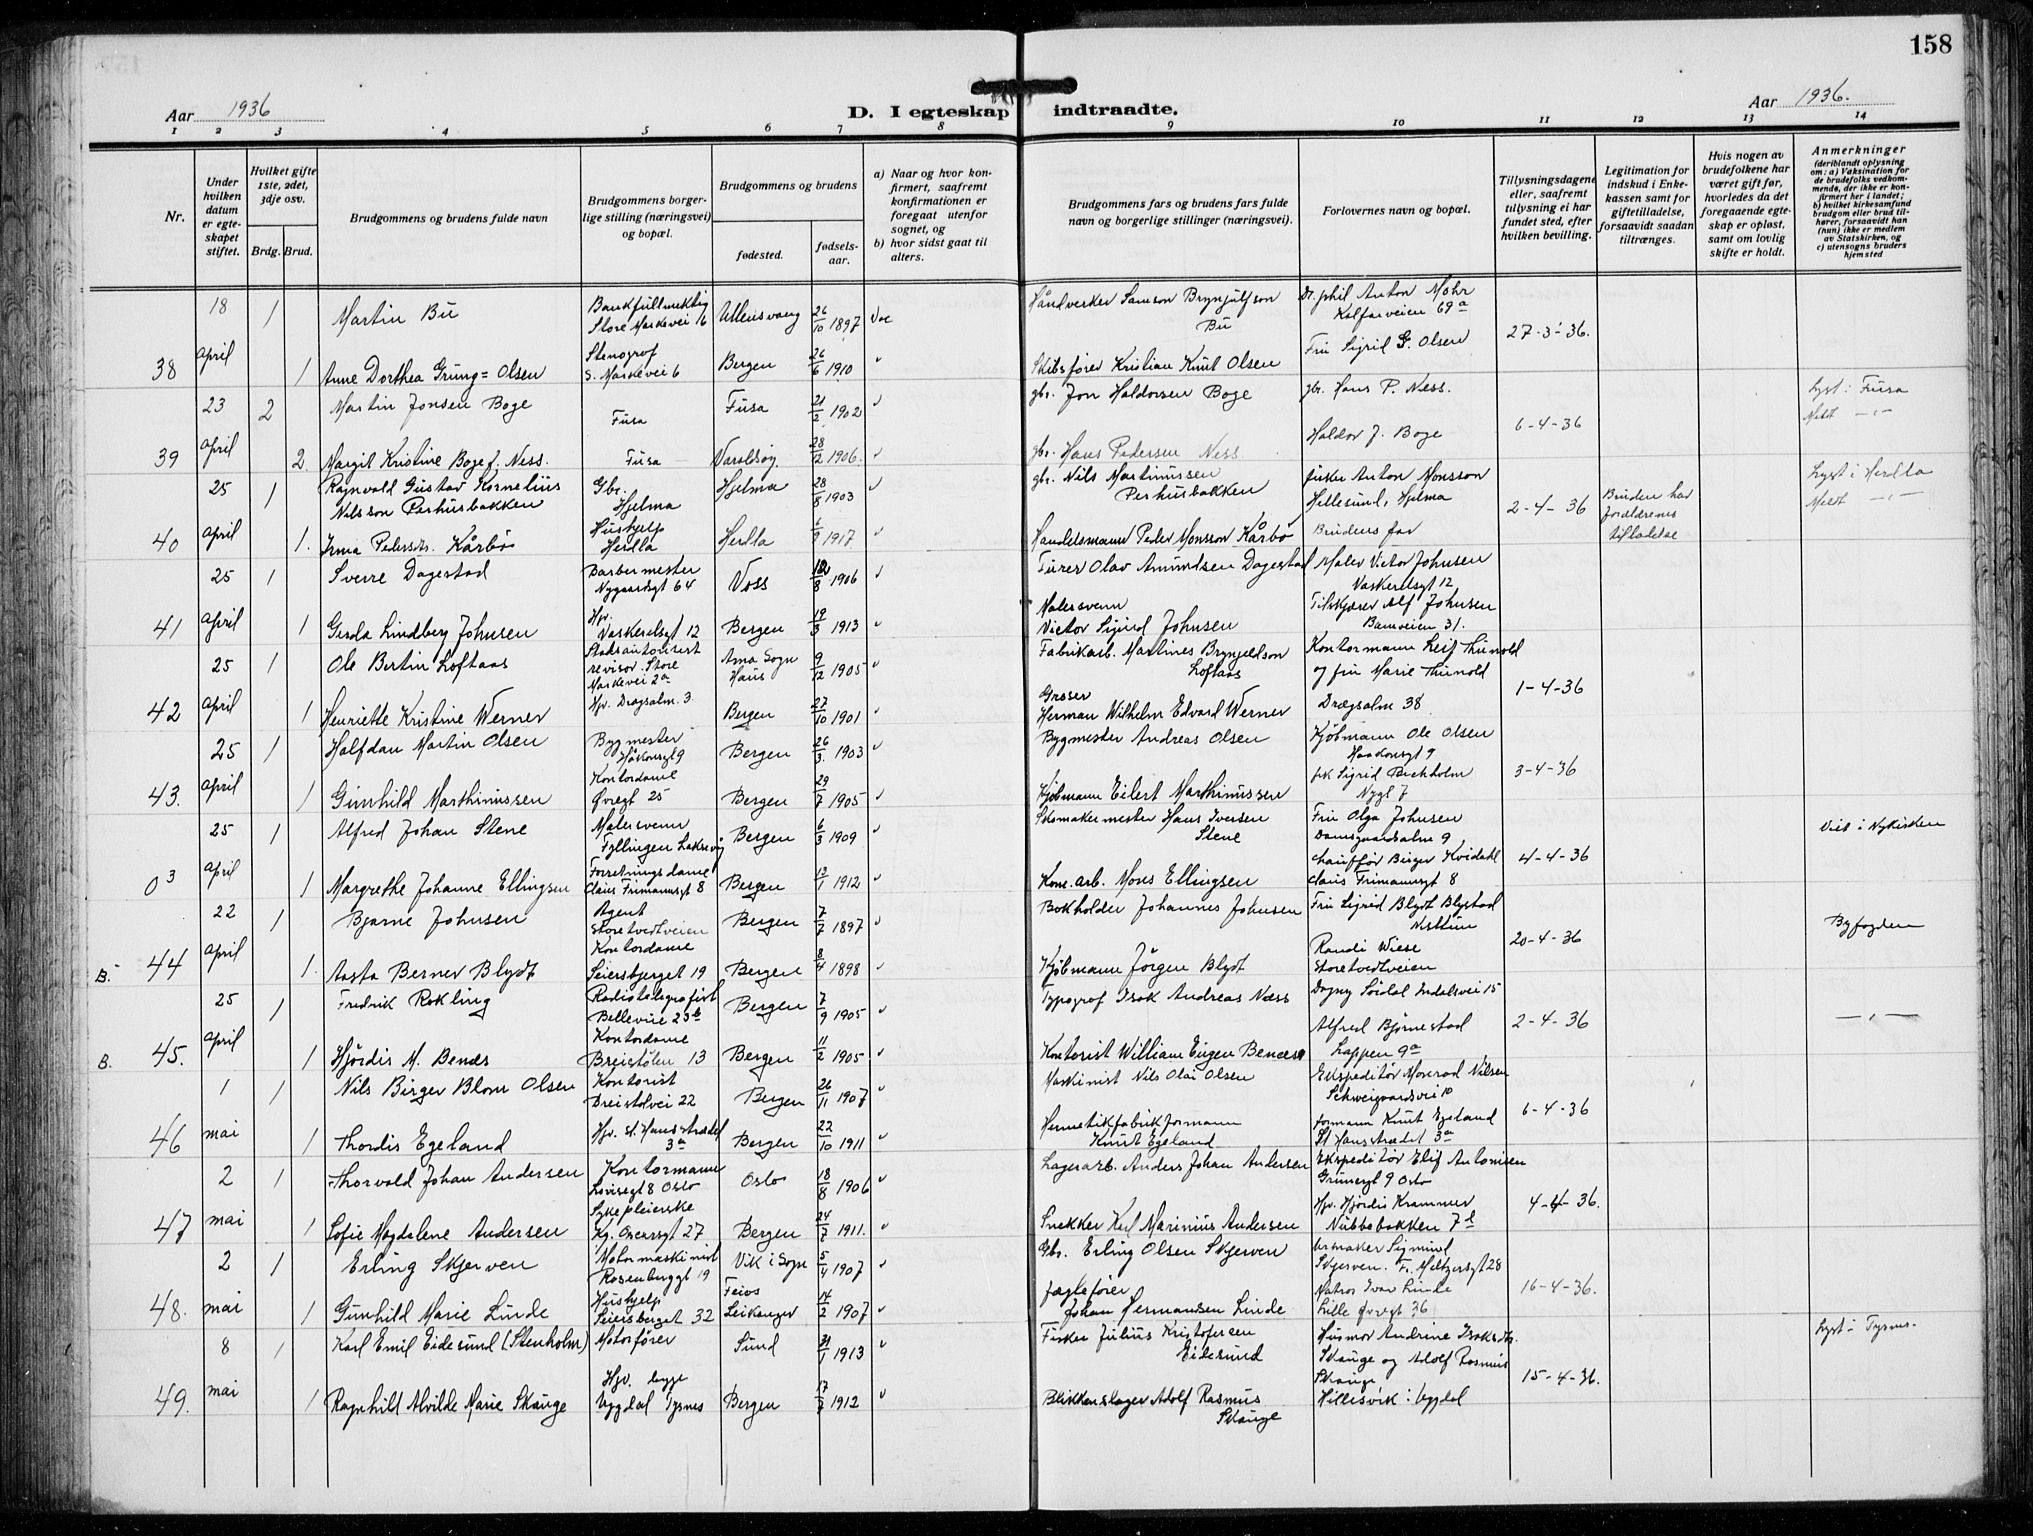 158
Aar 1936
D. I egteskap indtraadte.
Aar 1936.
1 2 3 4 5 6 7 8 9 10 11 12 13 14
Nr.
Under hvilken datum er egteskapet stiftet.
Hvilket gifte 1ste, 2det, 3dje osv.
Brdg. Brud.
Brudgommens og brudens fulde navn
Brudgommens borgerlige stilling (næringsvei) og bopæl.
Brudgommens og brudens
fødested.
fødselsaar.
a) Naar og hvor konfirmert, saafremt konfirmationen er foregaat utenfor sognet, og
b) hvor sidst gaat til alters.
Brudgommens fars og brudens fars fulde navn og borgerlige stillinger (næringsvei).
Forlovernes navn og bopæl.
Tillysningsdagene eller, saafremt tillysning ei har fundet sted, efter hvilken bevilling.
Legitimation for indskud i Enkekassen samt for giftetilladelse, forsaavidt saadan tiltrænges.
Hvis nogen av brudefolkene har været gift før, hvorledes da det foregaaende egteskap er opløst, samt om lovlig skifte er holdt.
Anmerkninger
(deriblandt oplysning om: a) Vaksination for de brudefolks vedkommende, der ikke er konfirmert her i landet; b) hvilket kirkesamfund brudgom eller brud tilhører, forsaavidt han (hun) ikke er medlem av Statskirken, og c) utensogns bruders hjemsted
18 1 Martin Bu Bankfullmektig Store Markevei 16 Ullensvang 26/10 1897 Håndverker Samson Brynjulfson Bu Dr. phil Anton Mohr Kalfarveien 69a 27-3-36.
38 april 1 Anne Dorthea Grung=Olsen Stenograf S. Markevei 6 Bergen 26/6 1910 Skibsfører Kristian Knut Olsen Fru Sigrid G. Olsen
23 2 Martin Jonsen Boge Fusa Fusa 21/2 1902 gbr. Jon Haldorsen Boge gbr. Hans P. Ness. 6-4-36 Lyst i Fusa
39 april 2. Margit Kristine Boge f. Ness. Fusa Varaldsøy 28/12 1906. gbr. Hans Pedersen Ness Haldor J. Boge Meldt -"-
25 1 Ragnvald Gustav Kornelius Nilsson Perhusbakken Gbr. Hjelma Hjelma 28/8 1903 gbr. Nils Martinussen Perhusbakken fisker Anton Monsson Hellesund, Hjelma 2-4-36 Bruden har forældrenes tilladelse Lyst i Herdla Meldt -"-
40 april 1. Irma Pedersdtr. Kårbø Hushjelp Herdla Herdla 1917 Handelsmann Peder Monsson Kårbø Brudens far
25 1 Sverre Dagestad Barbermester Nygaardsgt 64 Voss 1906 Furer Olav Amundsen Dagestad Maler Victor Johnsen Vaskerelvgt 12
41 april 1 Gerda Lindberg Johnsen Hjv. Vaskerelvgt 12 Bergen 19/3 1913 Malersvenn Victor Sigurd Johnsen Tilskjærer Alf Johnsen 31.
25 1 Ole Bertin Loftaas Statsautorisert revisor. Store Markevei 2a Arna Sogn Haus 9/12 1905 Fabrikarb. Martines Brynjeldson Loftaas Kontormann Leif Thunold og fru Marie Thunold 1-4-36
42 april 1 Henriette Kristine Werner Hjv. Dragsalm. 3 Bergen 27/10 1901 Grosser Herman Wilhelm Edvard Werner Drægsalm 38
25 1 Halfdan Martin Olsen Bygmester Håkonsgt 9 Bergen 26/3 1903 Bygmester Andreas Olsen Kjøbmann Ole Olsen Haakonsgt 9 3-4-36
43. april 1 Gunhild Marthinussen Kontordame Øvregt 25 Bergen 29/7 1905 Kjøbmann Eilert Marthinussen frk Sigrid Nygt 7
25 1 Alfred Johan Stene Malersvenn Fyllingen Laksevåg Bergen 6/3 1909 Skomakermester Hans Iversen Stene Fru Olga Johnsen Damsgaardsalm 9 4-4-36 Viet i Nykirken
03 april 1 Margrethe Johanne Ellingsen Forretningsdame Claus Frimannsgt 8 Bergen 13/1 1912 Kom. arb. Mons Ellingsen Chauffør Birger Kvidahl Claus Frimannsgt 8
22 1 Bjarne Johnsen Agent Storetvedtveien Bergen 7/7 1897 Bokholder Johannes Johnsen Fru Sigrid Blydt Blystad Nesttun 20-4-36 Byfogden
B. 44 april 1. Aasta Berner Blydt Kontordame Seiersbjerget 19 Bergen 8/4 1898 Kjøbmann Jørgen Blydt Randi Wiese Storetvedtveien
25 1 Fredrik Rokling Radiotelegrafist Bellevue 23b Bergen 7/9 1905 Typograf Isak Andreas Næss Dagny Søidal Indalsvei 15 2-4-36 -"-
B. 45. april 1 Hjørdis M. Benæs Kontordame Breistølen 13 Bergen 11/2 1905 Kontorist William Eugen Benæs Alfred Bjørnestad Lappen 9a
1 1 Nils Birger Blom Olsen Kontorist Breistølvei 22 Bergen 26/11 1907 Maskinist Nils Olai Olsen Ekspeditør Monrad Nilsen Schweigaardsvei 10 6-4-36
46 mai 1 Thordis Egeland Hjv. St. Hansstrædet 3a Bergen 22/10 1911 Hermetikfabrikformann Knut Egeland formann Knut Egeland St Hansstrædet 3a
2 1 Thorvald Johan Andersen Kontormann Lovisegt 8 Oslo Oslo 18/8 1906 Lagerarb. Anders Johan Andersen Ekspeditør Elif Antonisen Grünersgt 9 Oslo 4-4-36.
47 mai 1 Sofie Magdalene Andersen Sykepleierske Kg. Oscarsgt 27 Bergen 24/7 1911. Snekker Karl Marinius Andersen Hjv. Hjørdis Krammer Nubbebakken 7
2 1 Erling Skjerven Motormaskinist Rosenberggt 19 Vik i Sogn 5/4 1907 Gbr. Erling Olsen Skjerven Urmaker Sigmund Skjerven. Fr. Meltzersgt 28 16-4-36.
48. mai 1 Gunhild Marie Linde Hushjelp Seiersberget 32 Feios Leikanger 14/2 1907 Jægtefører Johan Hermansen Linde Matros Ivar Linde Lille Øvregt 36
8 1 Karl Emil Eidesund (Stenholm) Motorfører Sund 31/1 1913 Fisker Julius Kristofersen Eidesund Husmor Andrine Isaksdtr. Skauge og Adolf Rasmus Skauge 15-4-36. Lyst i Tysnes.
49. mai 1 Ragnhild Alvilde Marie Skauge Hjv. begge Uggdal Tysnes Bergen 17/7 1912 Blikkenslager Adolf Rasmus Skauge Hillesvik: Uggdal